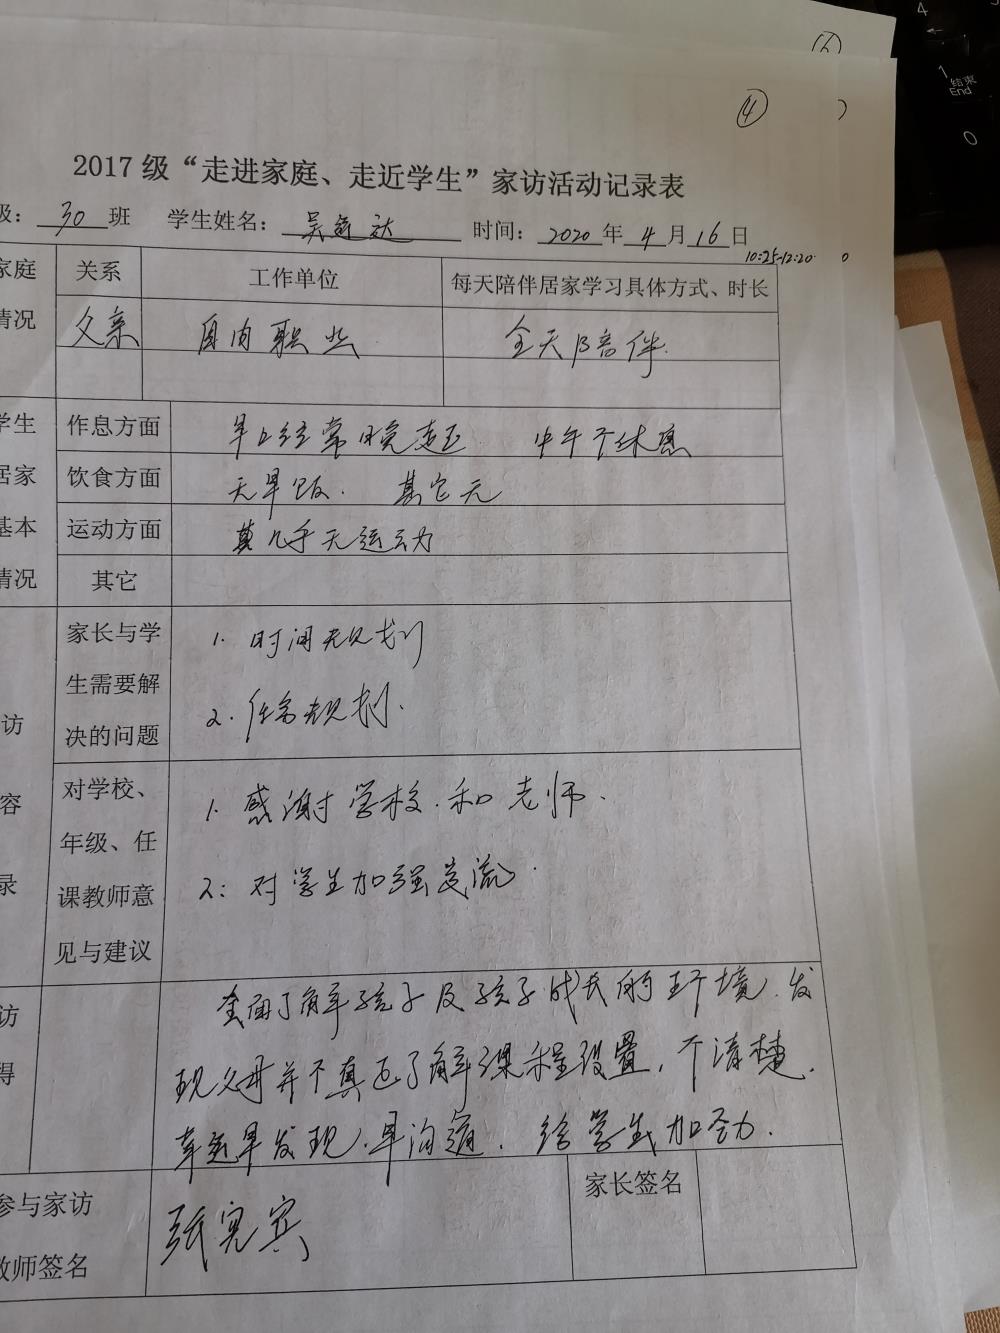 ⑥
④
2017级“走进家庭、走近学生”家访活动记录表
级：30班 学生姓名：吴 达 时间：2020年4月16日
10:25-12:20
家庭 关系 工作单位 每天陪伴居家学习具体方式、时长
情况 父亲 自由职业 全天陪伴.
学生 作息方面 早上经常晚起 中午不休息
居家 饮食方面 无早饭. 其它无
基本 运动方面 几乎无运动
情况 其它
家长与学 1. 时间规划
生需要解 2. 任务规划.
访 决的问题
对学校、 1. 感谢学校.和老师.
容 年级、任
录 课教师意 2: 对学生加强交流.
见与建议
访 全面了解孩子及孩子成长的环境.发
得 现父母并不真正了解课程设置,不清楚.
幸运早发现.早沟通. 给学生加劲.
参与家访 家长签名
教师签名 张 宾
4
1 结束
End
0